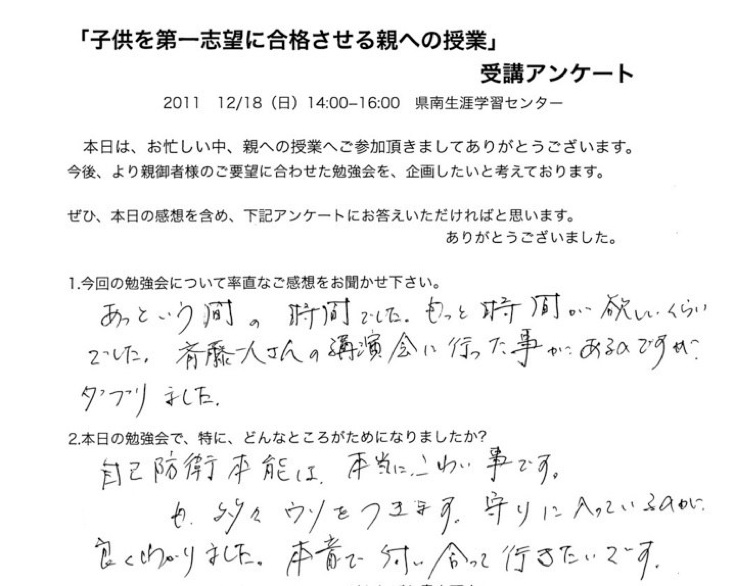 「子供を第一志望に合格させる親への授業」
受講アンケート
2011 12/18（日）14:00−16:00 県南生涯学習センター
本日は、お忙しい中、親への授業へご参加頂きましてありがとうございます。
今後、より親御者様のご要望に合わせた勉強会を、企画したいと考えております。
ぜひ、本日の感想を含め、下記アンケートにお答えいただければと思います。
ありがとうございました。
1.今回の勉強会について率直なご感想をお聞かせ下さい。
あっという間の時間でした。もっと時間が欲しいくらい
でした。斉藤一人さんの講演会に行った事があるのですが、
ダブりました。
2.本日の勉強会で、特に、どんなところがためになりましたか?
自己防衛本能は、本当にこわい事です。
も多々ウソをつきます。守りに入っているのが、
良くわかりました。本音で付い合って行きたいです。